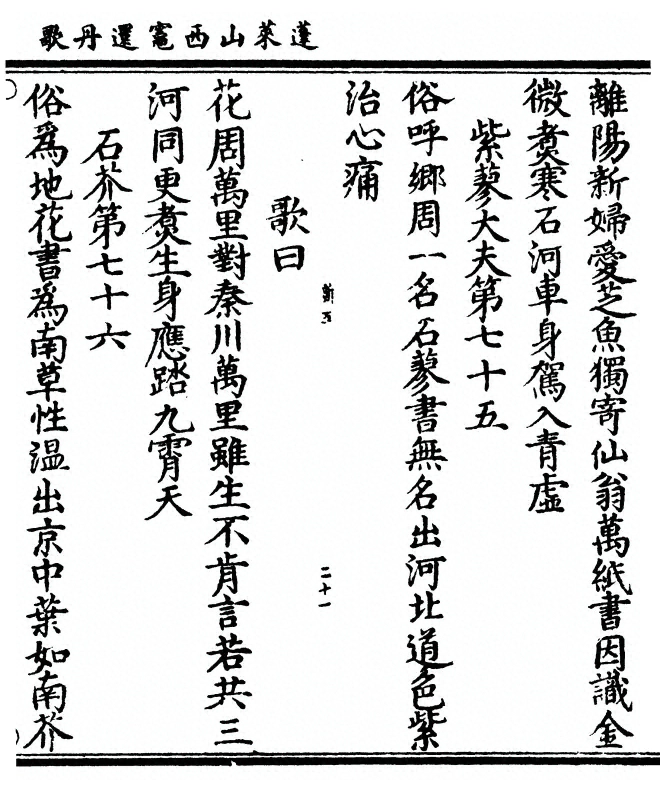 蓬萊山西竈還丹歌
離陽新婦愛芝魚獨寄仙翁萬紙書因識金
微煑寒石河車身駕入青虛
紫蓼大夫第七十五
俗呼鄉周一名石蓼書無名出河北道色紫
治心痛
歌曰
二十一
花周萬里對秦川萬里雖生不肯言若共三
河同更煑生身應踏九霄天
石芥第七十六
俗爲地花書爲南草性溫出京中葉如南芥